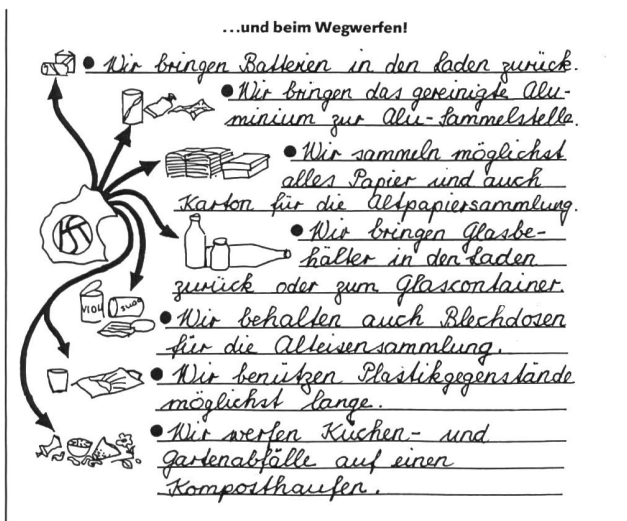 ...und beim Wegwerfen!
• Wir bringen Batterien in den Laden zurück.
• Wir bringen das gereinigte Alu-
minium zur Alu-Sammelstelle.
• Wir sammeln möglichst
alles Papier und auch
Karton für die Altpapiersammlung.
• Wir bringen Glasbe-
hälter in den Laden
zurück oder zum Glascontainer.
• Wir behalten auch Blechdosen
für die Alteisensammlung.
• Wir benützen Plastikgegenstände
möglichst lange.
• Wir werfen Küchen- und
Gartenabfälle auf einen
Komposthaufen.